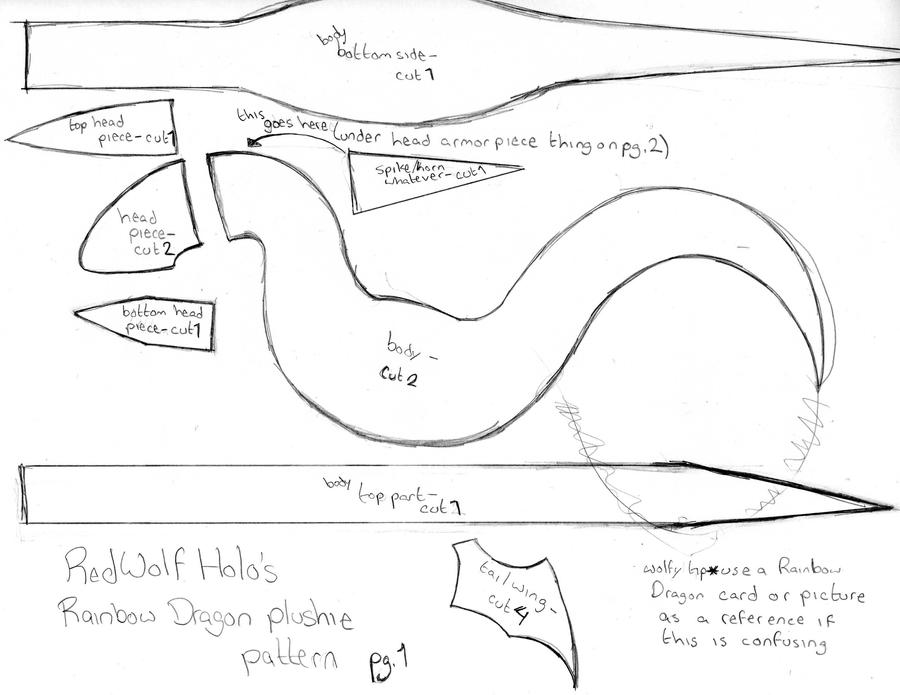 body
bottom side-
cut 1
top head
piece-cut 1
this
goes here (under head armor piece thing on pg. 2)
spike/horn
whatever-cut 1
head
piece-
cut 2
bottom head
piece-cut 1
body -
cut 2
body
top part-
cut 1
tail wing-
cut 4
RedWolf Holo's
Rainbow Dragon plushie
pattern pg. 1
use a Rainbow
Dragon card or picture
as a reference if
this is confusing